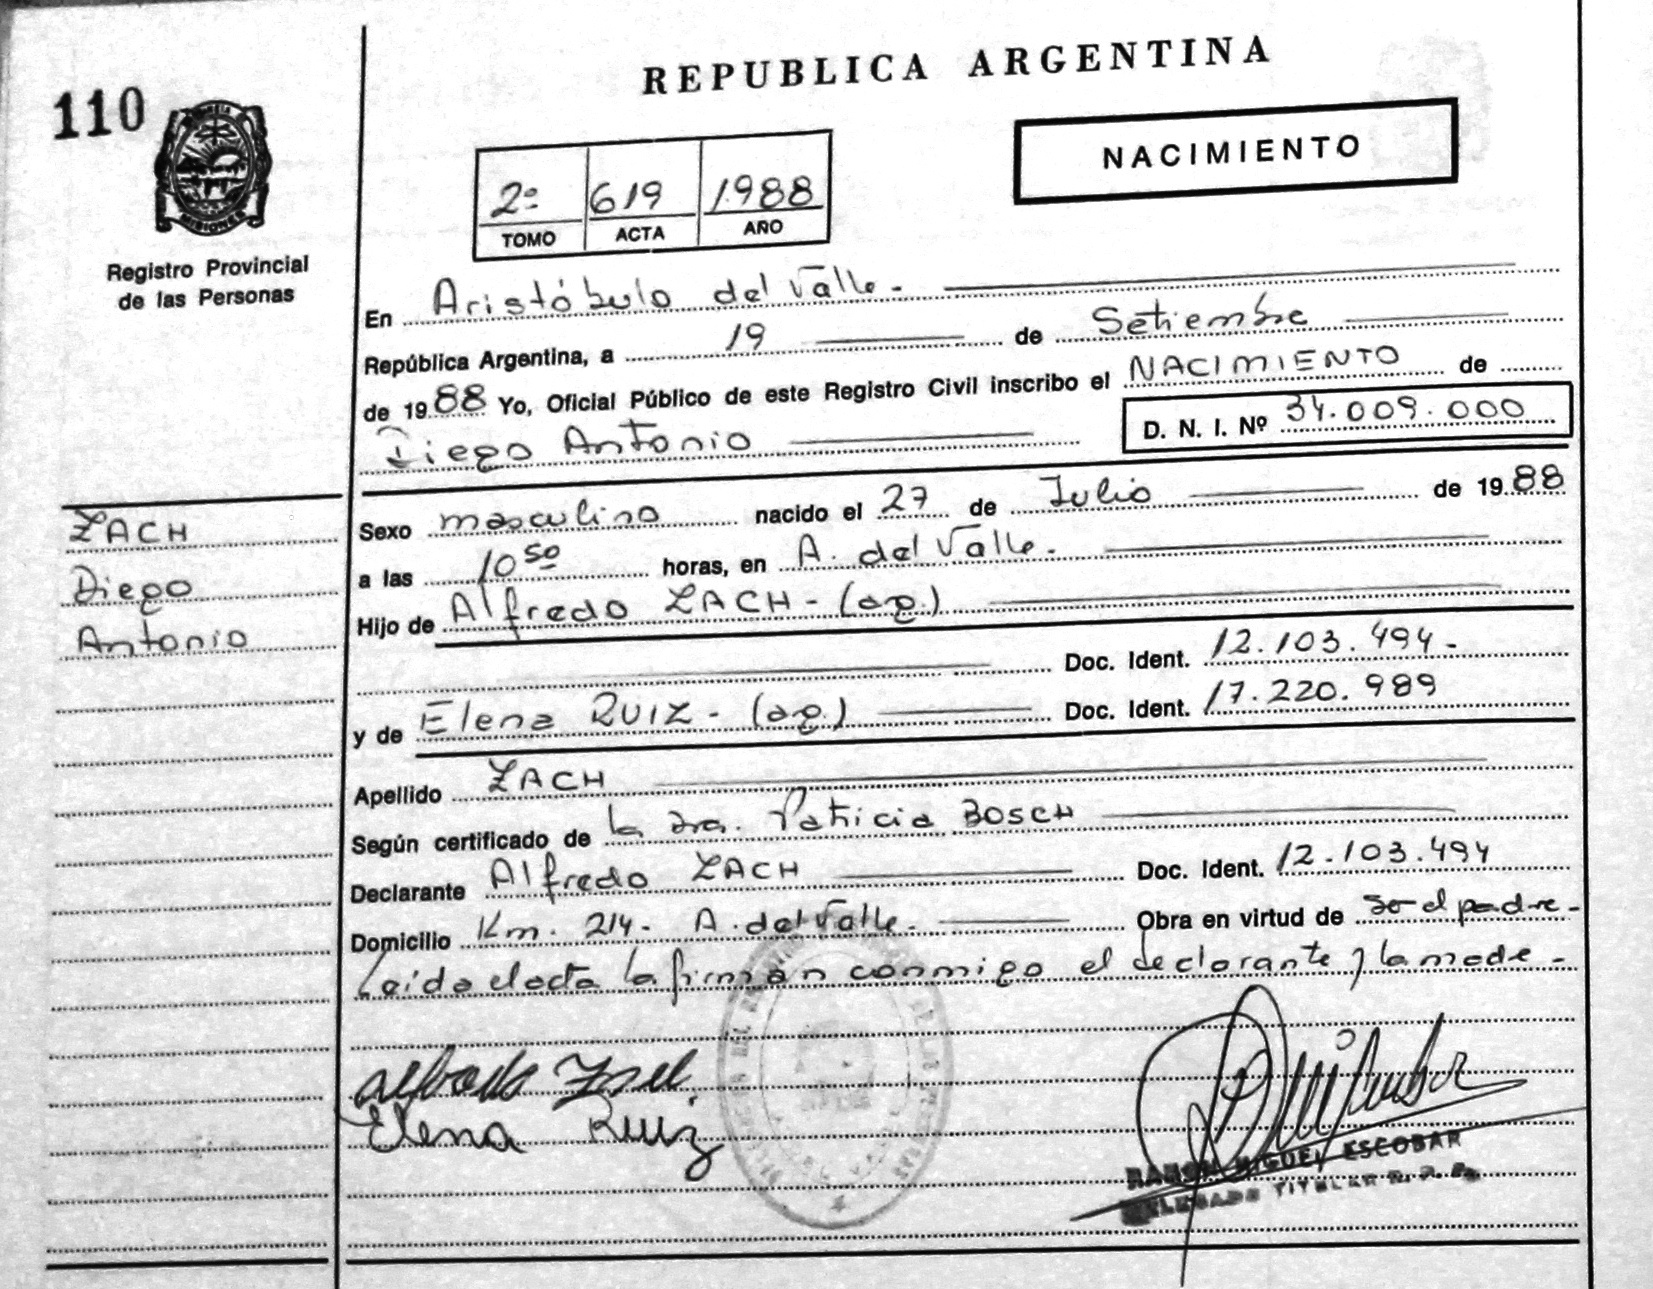 REPUBLICA ARGENTINA
110
NACIMIENTO
MISIONES
2º 619 1988
TOMO ACTA AÑO
Registro Provincial
de las Personas
En Aristóbulo del Valle.-
República Argentina, a 19 de Setiembre
de 1988 Yo, Oficial Público de este Registro Civil inscribo el NACIMIENTO de
Diego Antonio D. N. I. Nº 34.009.000
ZACH
Diego
Antonio
Sexo masculino nacido el 27 de Julio de 1988
a las 10 50 horas, en A. del Valle.-
Hijo de Alfredo ZACH - (ag.)
Doc. Ident. 12.103.494-
y de Elena RUIZ - (ag.) Doc. Ident. 17.220.989
Apellido ZACH
Según certificado de la Dra. Patricia BOSCH
Declarante Alfredo ZACH Doc. Ident. 12.103.494
Domicilio Km. 214- A. del Valle.- Obra en virtud de so el padre-
Leída el acta la firman conmigo el declarante y la madre-
Elena Ruiz
RAMON MIGUEL ESCOBAR
DELEGADO TITULAR R. P. P.